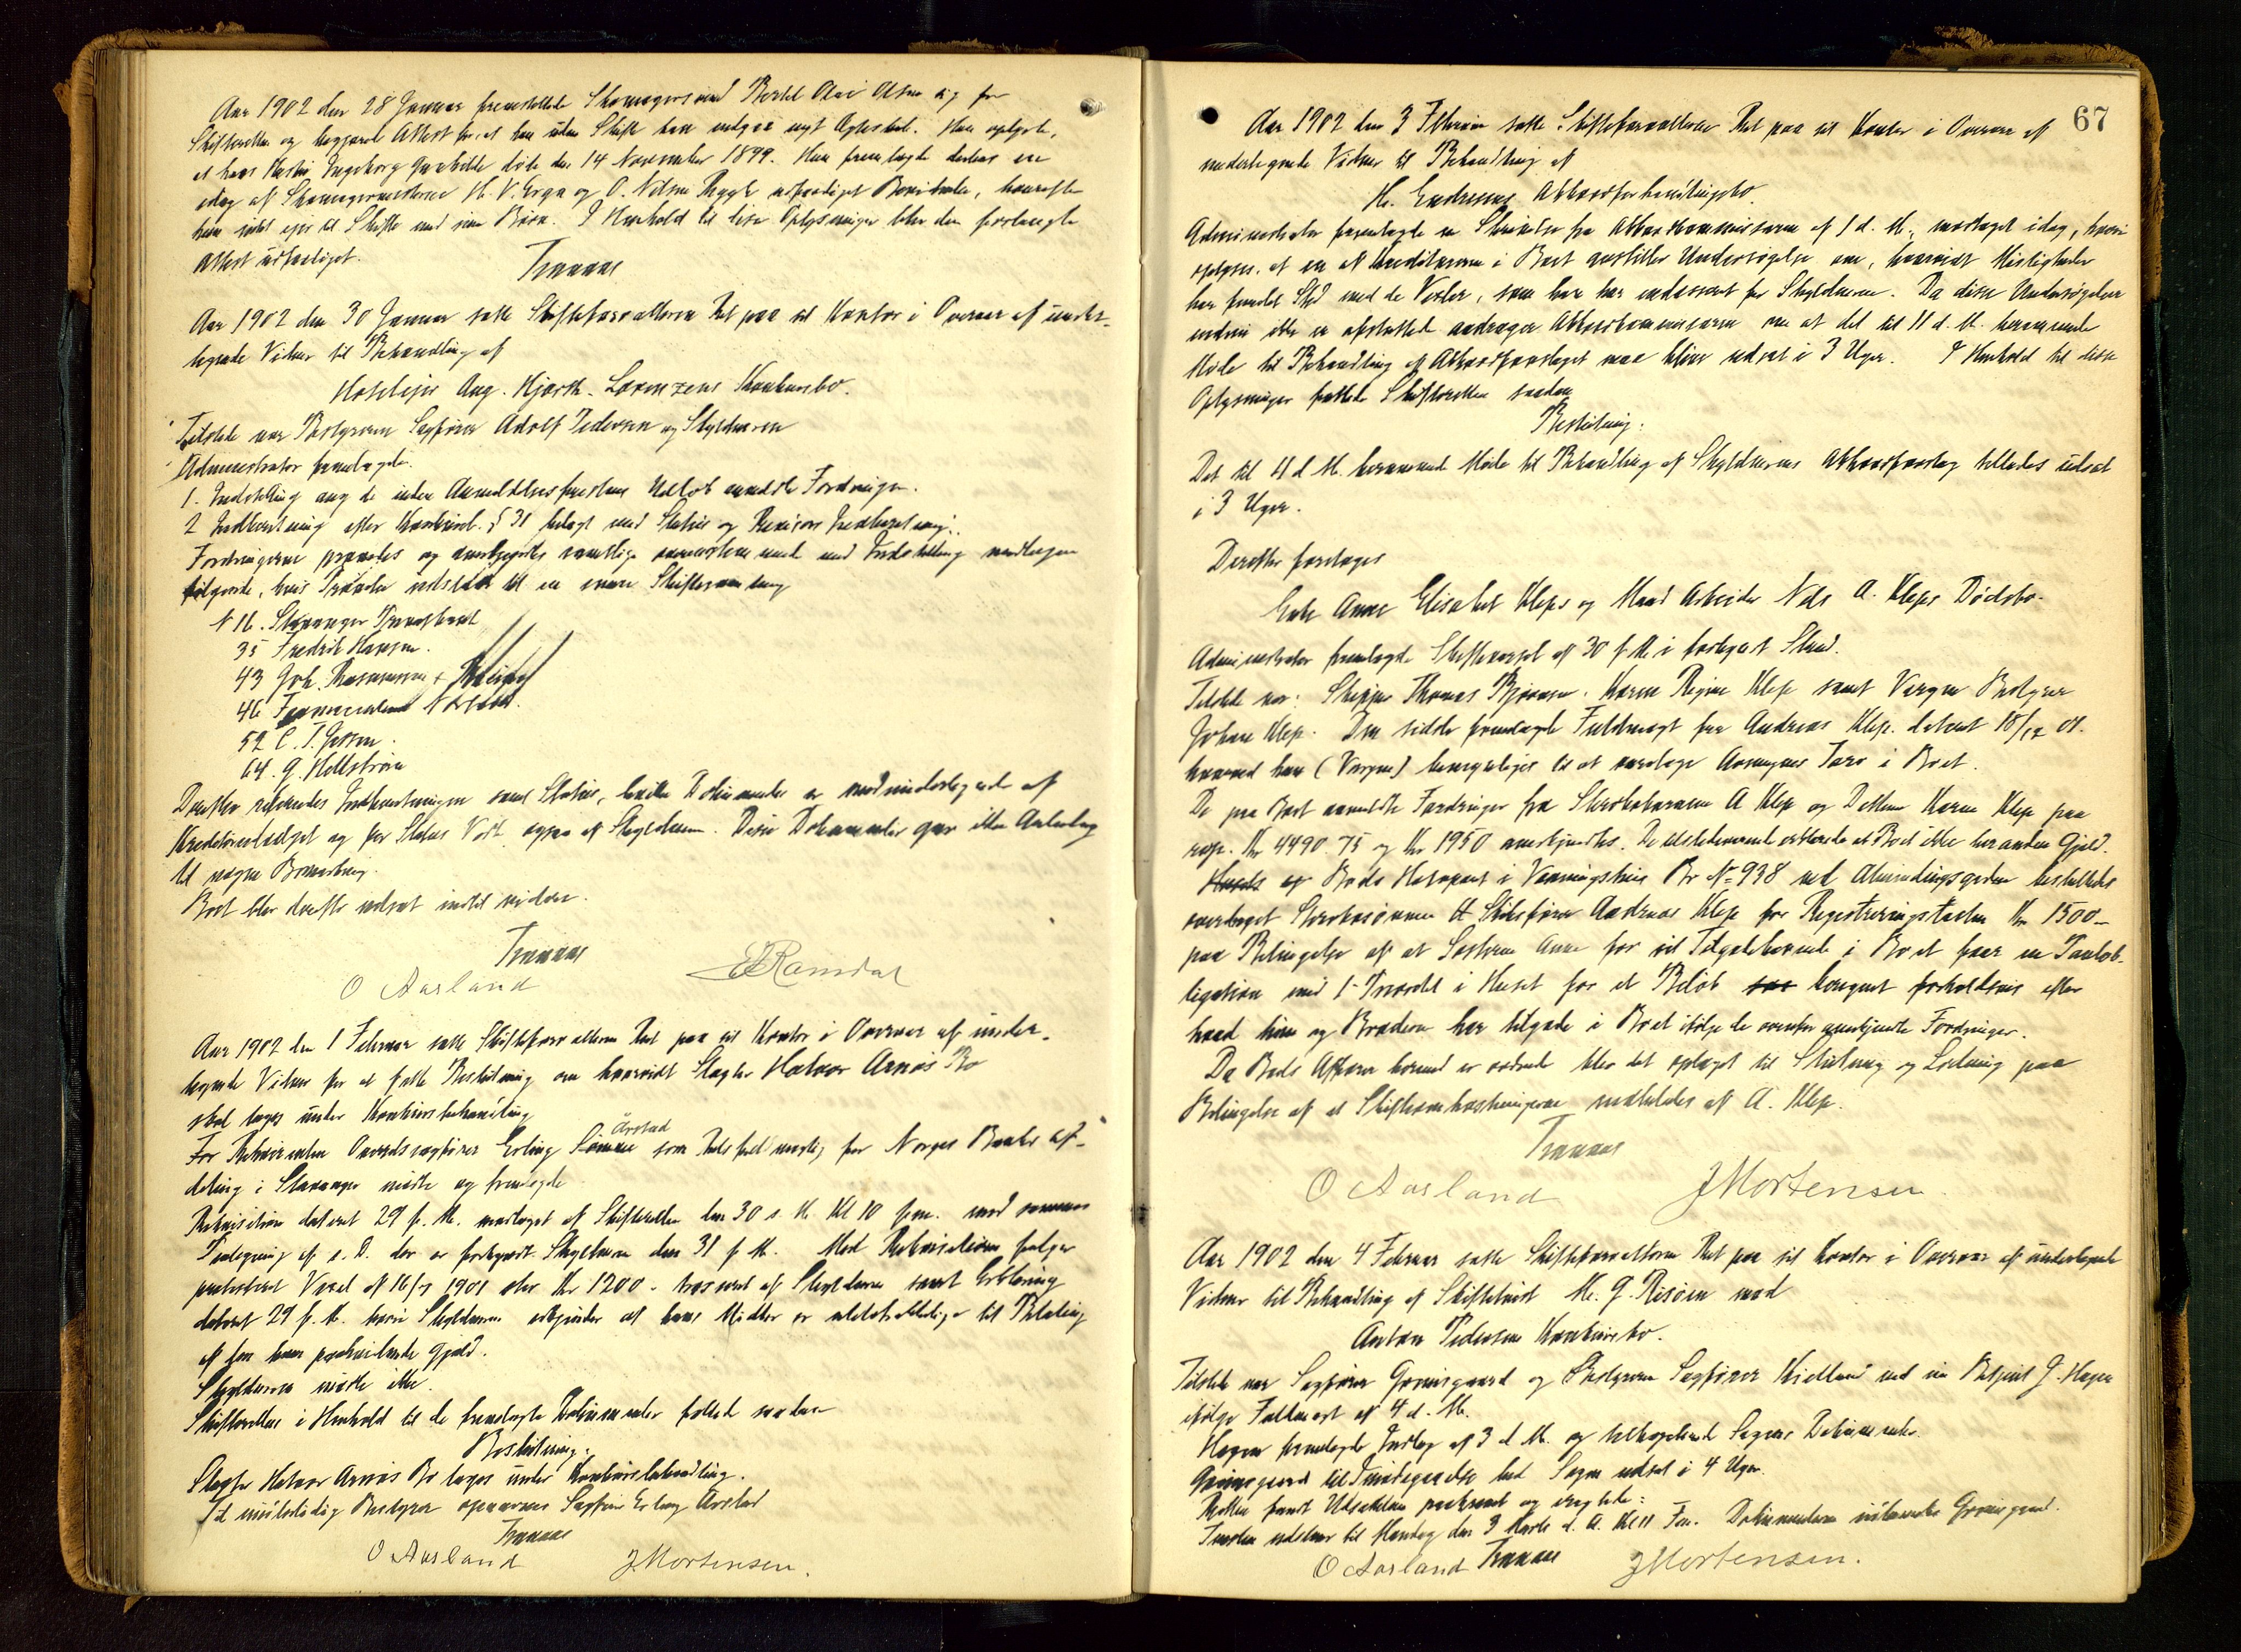 Aar 1902 den 28 Januar fremstillede Skomagersvend Bertel Olai Olsen sig for
Skifteretten og begjærede Attest for, at han uden Skifte kan indgaa nyt Ægteskab. Han oplyste,
at hans Hustru Ingeborg døde den 14 November 1899. Han fremlagde derhos en
idag af Skomagermesterne H. V. Erga og O. Nilsen Bygge udfærdiget Bevidnelse, hvorefter
han intet ejer til Skifte med sine Børn. I Henhold til disse Oplysninger blev den forlangte
Attest udfærdiget.
Tranaas
Aar 1902 den 30 Januar satte Skifteforvalteren Ret paa sit Kontor i Overvær af under-
tegnede Vidner til Behandling af
Hotelejer Aug. Hjorth-Lorenzens Konkursbo.
Tilstede var Bestyreren Sagfører Adolf Pedersen og Skyldneren
Administrator fremlagde.
1. Indstilling ang de inden Anmeldelsesfristens Udløb anmeldte Fordringer.
2 Indberetning efter Konkursl. § 31 belagt med Status og Revisors Indberetning.
Fordringerne prøvedes og anerkjendtes samtlige overensstemmende med Indstilling undtagen
følgende, hvis Prøvelse udstod til en senere Skiftesamling
N 16. Stavanger Privatbank
35 Fredrik Hansen.
43 Joh. Rasmussen &
46
52 C. T. Jessen.
64. G. Hellstrøm
Derefter refereredes Indberetningen samt Status, hvilke Dokumenter er medunderskrevet af
Kreditorudvalget og for Status Vedk. ogsaa af Skyldneren. Disse Dokumenter gav ikke Anledning
til nogen Bemærkning.
Boet blev derefter udsat indtil videre.
Tranaas
O Aarland E Ramsdal
Aar 1902 den 1 Februar satte Skifteforvalteren Ret paa sit Kontor i Overvær af under-
tegnede Vidner for at fatte Beslutning om hvorvidt Slagter Halvor Arnøs Bo
skal tages under Konkursbehandling
Årstad
For Rekvirenten Overretssagfører Erling som Retsfuldmægtig for Norges Banks Af-
deling i Stavanger mødte og fremlagde
Rekvisition dateret 29 f. M. modtaget af Skifteretten den 30 s. M. Kl 10 fm. med sammes
Paategning af s. D. der er forkyndt Skyldneren den 31 f M. Med Rekvisitionen følger
protesteret Vexel af 16/7 1901 stor Kr 1200 - trasseret af Skyldneren samt Erklæring
dateret 29 f. M. hvori Skyldneren erkjender at hans Midler er utilstrækkelige til Betaling
af den ham paahvilende Gjæld.
Skyldneren mødte ikke.
Skifteretten i Henhold til de fremlagte Dokumenter fattede saadan
Beslutning:
Slagter Halvor Arnøs Bo tages under Konkursbehandling.
Til midlertidig Bestyrer opnævnes Sagfører Erling Årstad
Tranaas
O Aarland JMortensen.
67
Aar 1902 den 3 Februar satte Skifteforvalteren Ret paa sit Kontor i Overvær af
undertegnede Vidner til Behandling af
H. Endresens Akkordforhandlingsbo.
Administrator fremlagde en Skrivelse fra Akkordkommissæren af 1 d. M., modtaget idag, hvori
oplyses, at en af Kreditorerne i Boet anstiller Undersøgelse om, hvorvidt Misligheder
har fundet Sted med de Vexler, som han har endosseret for Skyldneren. Da disse Undersøgelser
endnu ikke er afsluttede andrager Akkordkommissæren om at det til 11 d. M. berammede
Møde til Behandling af Akkordforslaget maa blive udsat i 3 Uger. I Henhold til disse
Oplysninger fattede Skifteretten saadan
Beslutning:
Det til 11 d M. berammede Møde til Behandling af Skyldnerens Akkordforslag tillades udsat
i 3 Uger.
Derefter foretoges
Enke Anne Elisabet Kleps og Mand Arbeider Nils A. Kleps Dødsbo.
Administrator fremlagde Skiftevarsel af 30 f M i forkyndt Stand.
Tilstede var: Skipper Thomas Bjørnsen. Karen Regine Klep samt Vergen Bestyrer
Johan Klep. Den sidste fremlagde Fuldmagt fra Andreas Klep. dateret 18/12 01.
hvorved han (Vergen) bemyndiges til at varetage Arvingens Tarv i Boet.
De paa Boet anmeldte Fordringer fra Skibskaptein A Klep og Datteren Karen Klep paa
resp. Kr 4490 75 og Kr 1950 anerkjendtes. De tilstedeværende erklærede at Boet ikke har anden Gjæld.
Boets Halvpart i Vaaningshus Br No 938 ved Almindingsgaden besluttedes
overdraget Sterbosønnen Skibsfører Andreas Klep for Registreringstaxten Kr 1500 -
paa Betingelse af at Søsteren Anne for sit Tilgodehavende i Boet faar en Pantob-
ligation med 1. Prioritet i Huset for et Beløb beregnet forholdsvis efter
hvad hun og Broderen har tilgode i Boet ifølge de ovenfor anerkjendte Fordringer.
Da Boets Affærer hermed er ordnede blev det optaget til Slutning og Lodning paa
Betingelse af at Skifteomkostningerne indbetales af A. Klep.
Tranaas
O Aarland JMortensen.
Aar 1902 den 4 Februar satte Skifteforvalteren Ret paa sit Kontor i Overvær af undertegnede
Vidner til Behandling af Skiftetvist M. G. Risøen mod
Anton Pedersens Konkursbo.
Tilstede var Sagfører Grønsgaard og Bestyreren Sagfører Kielland ved sin Betjent J. Hagen
ifølge Fuldmagt af 4 d. M.
Hagen fremlagde Indlæg af 3 d M. og tilbageleverede Sagens Dokumenter.
Grønsgaard til Imødegaaelse bad Sagen udsat i 4 Uger.
Retten fandt Udsættelsen paakrævet og eragtede:
Tvisten udstaar til Mandag den 3 Marts d. A. Kl 11 Fm. Dokumenterne udlaantes Grønsgaard.
O Aarland Tranaas JMortensen.